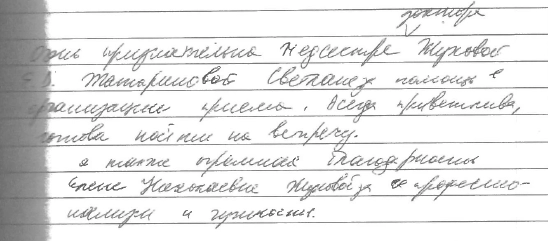 доктора
Очень признательна медсестре Жуковой
Е. В. Татариновой Светлане за помощь в
организации приема. Всегда приветлива,
готова пойти на встречу.
а также огромная благодарность
Елене Николаевне Жуковой за её професско-
нализм и чуткость.